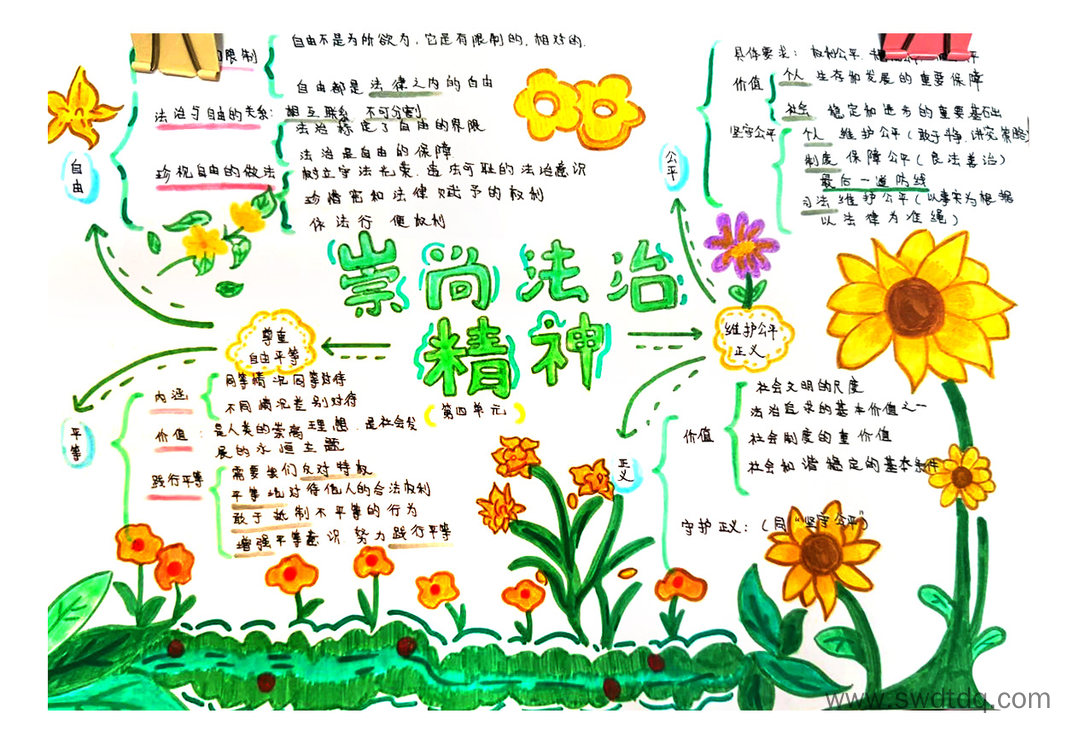 的限制
自由不是为所欲为,它是有限制的,相对的.
自由都是法律之内的自由
法治与自由的关系: 相互联系 不可分割
法治标定了自由的界限
法治是自由的保障
自由
珍视自由的做法
树立守法光荣、违法可耻的法治意识
珍惜宪和法律赋予的权利
依法行使权利
具体要求: 权利公平.
价值
个人 生存和发展的重要保障
社会 稳定和进步的重要基石出
坚守公平
个人 维护公平(敢于斗争,讲究策略)
制度保障公平(良法善治)
最后一道防线
司法维护公平(以事实为根据
以法律为准绳)
公平
崇尚法治
精神
第四单元
尊重
自由平等
维护公平
正义
平等
内涵
同等情况同等对待
不同情况差别对待
价值:
是人类的崇高理想,是社会发
展的永恒主题
践行平等
需要我们反对特权
平等地对待他人的合法权利
敢于抵制不平等的行为
增强平等意识 努力践行平等
正义
价值
社会文明的尺度
法治追求的基本价值之一
社会制度的重价值
社会和谐稳定的基本条件
守护正义:(同"坚守公平")
www.swdtdq.com